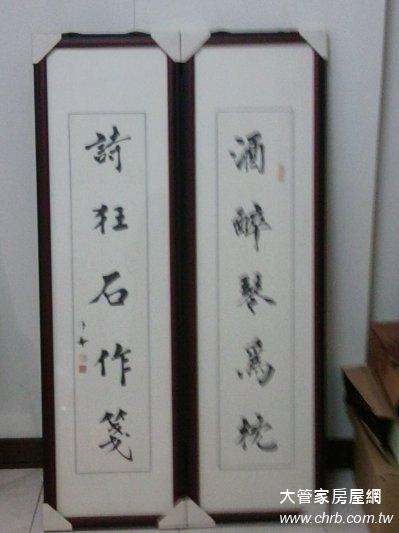 酒醉琴為枕
詩狂石作箋
大管家房屋網
www.chrb.com.tw